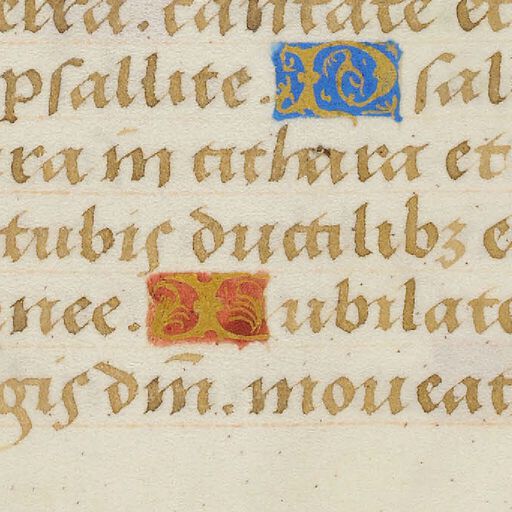 erra. cantate et
psallite. Psal
ara in cithara et
tubis ductilibꝫ e
nee. Iubilate
gis dm̄. moueat